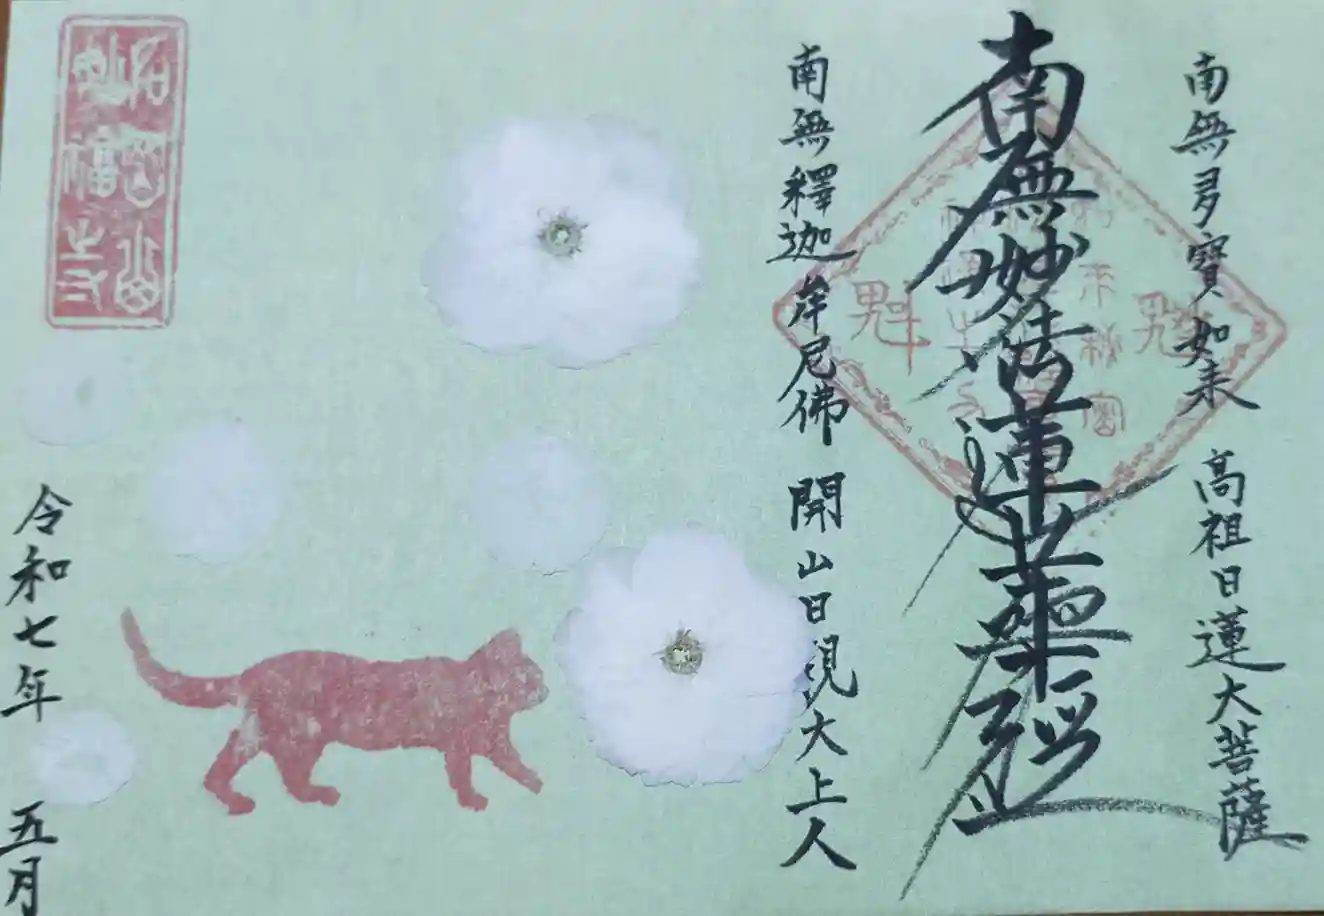 南無多寶如来　高祖日蓮大菩薩
南無妙法蓮華經
南無釋迦牟尼佛　開山日現大上人
魁
令和七年　五月